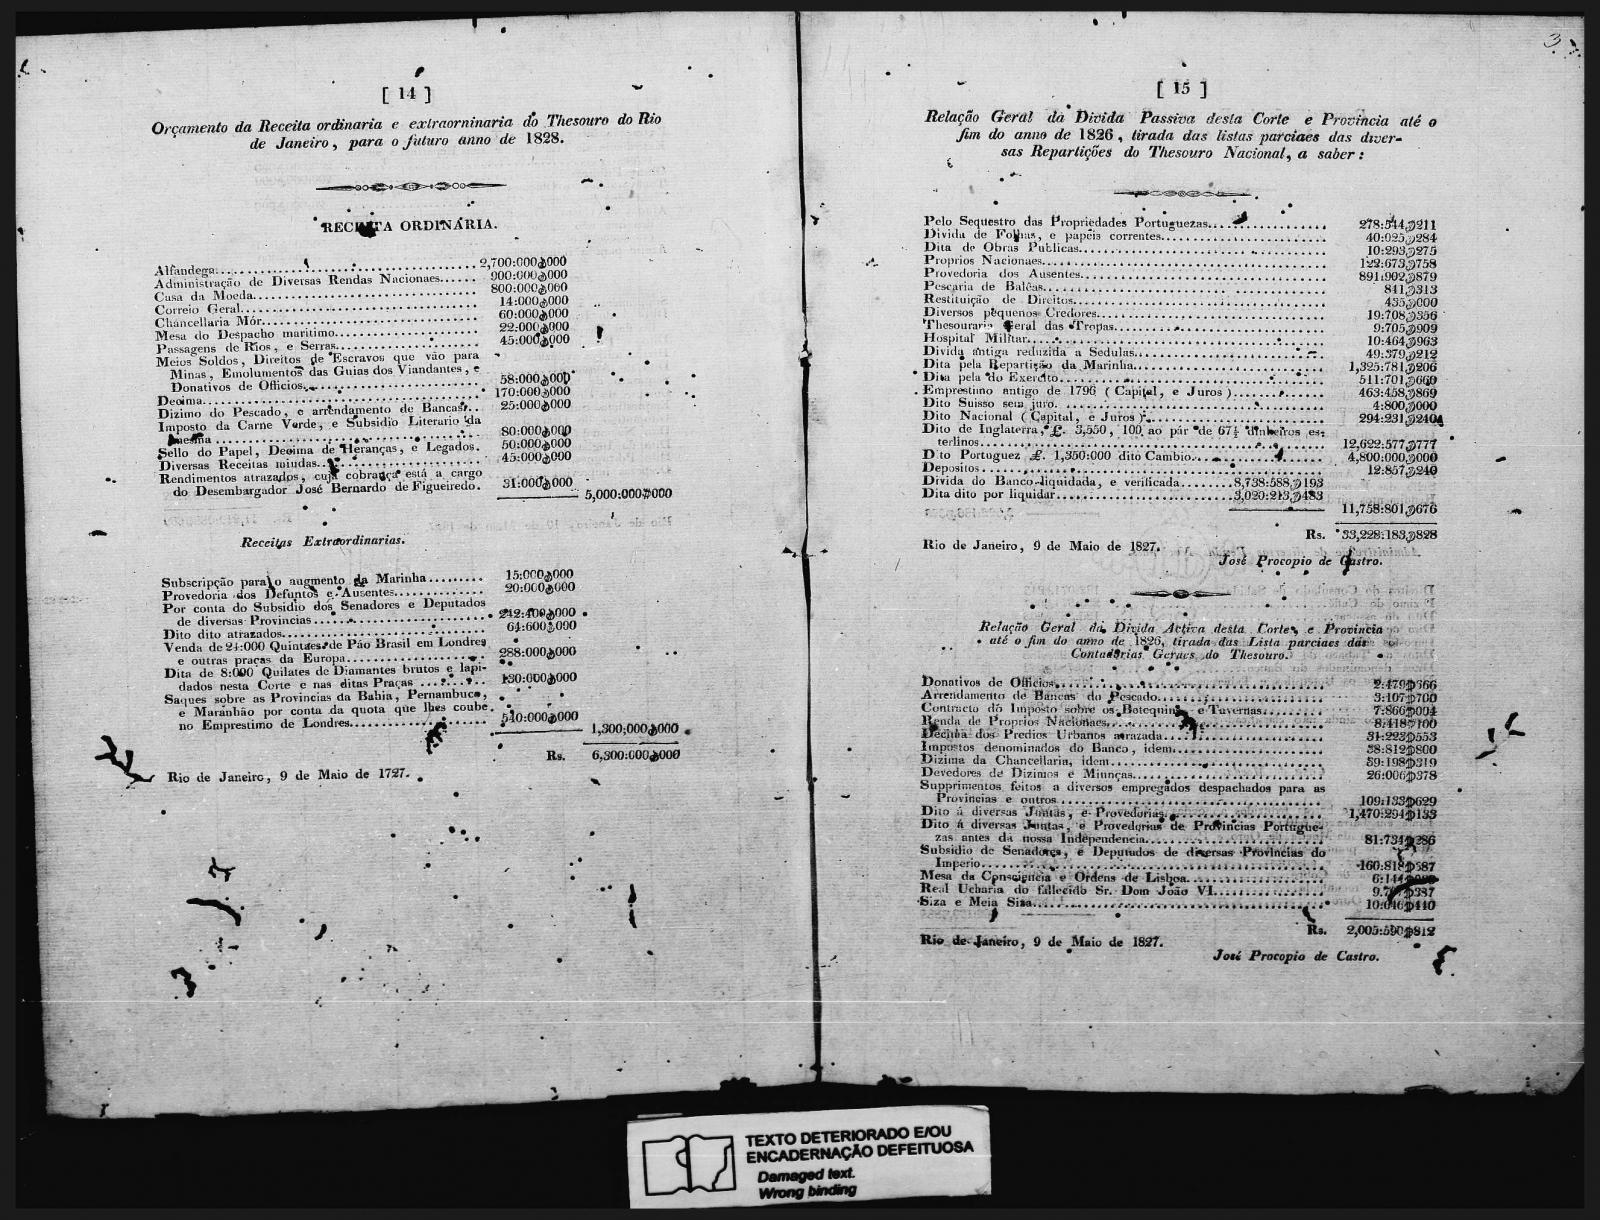 [ 14 ]
Orçamento da Receita ordinaria e extraorninaria do Thesouro do Rio
de Janeiro, para o futuro anno de 1828.
RECEITA ORDINARIA.
Alfandega 2,700:000$000
Administração de Diversas Rendas Nacionaes 900:000$000
Casa da Moeda 800:000$000
Correio Geral 14:000$000
Chancellaria Mór 60:000$000
Mesa do Despacho maritimo 22:000$000
Passagens de Rios, e Serras 45:000$000
Meios Soldos, Direitos de Escravos que vão para
Minas, Emolumentos das Guias dos Viandantes, e
Donativos de Officios 58:000$000
Decima 170:000$000
Dizimo do Pescado, e arrendamento de Bancas 25:000$000
Imposto da Carne Verde, e Subsidio Literario da
mesma 80:000$000
Sello do Papel, Decima de Heranças, e Legados. 50:000$000
Diversas Receitas miudas 45:000$000
Rendimentos atrazados, cuja cobrança está a cargo
do Desembargador José Bernardo de Figueiredo. 31:000$000
5,000:000$000
Receitas Extraordinarias.
Subscripção para o augmento da Marinha 15:000$000
Provedoria dos Defuntos e Ausentes 20:000$000
Por conta do Subsidio dos Senadores e Deputados
de diversas Provincias 242:400$000
Dito dito atrazados 64:600$000
Venda de 24:000 Quintaes de Páo Brasil em Londres
e outras praças da Europa 288:000$000
Dita de 8:000 Quilates de Diamantes brutos e lapi-
dados nesta Corte e nas ditas Praças 130:000$000
Saques sobre as Provincias da Bahia, Pernambuco,
e Maranhão por conta da quota que lhes coube
no Emprestimo de Londres 540:000$000
1,300;000$000
Rs. 6,300:000$000
Rio de Janeiro, 9 de Maio de 1727.
3
[ 15 ]
Relação Geral da Divida Passiva desta Corte e Provincia até o
fim do anno de 1826, tirada das listas parciaes das diver-
sas Repartições do Thesouro Nacional, a saber:
Pelo Sequestro das Propriedades Portuguezas 278:544$211
Divida de Folhas, e papeis correntes 40:025$284
Dita de Obras Publicas 10:293$275
Proprios Nacionaes 122:673$758
Provedoria dos Ausentes 891:902$879
Pescaria de Balêas 841$313
Restituição de Direitos 435$000
Diversos pequenos Credores 19:708$356
Thesouraria Geral das Tropas 9:705$909
Hospital Militar 10:464$963
Divida antiga reduzida a Sedulas 49:379$212
Dita pela Repartição da Marinha 1,325:781$206
Dita pela do Exercito 511:701$660
Emprestino antigo de 1796 (Capital, e Juros) 463:458$869
Dito Suisso sem juro. 4:800$000
Dito Nacional (Capital, e Juros) 294:231$240
Dito de Inglaterra, £. 3,550, 100 ao pár de 67½ dinheiros es-
terlinos 12,622:577$777
Dito Portuguez £. 1,350:000 dito Cambio 4,800:000$000
Depositos 12:857$240
Divida do Banco liquidada, e verificada 8,738:588$193
Dita dito por liquidar 3,020:213$483
11,758:801$676
Rs. 33,228:183$828
Rio de Janeiro, 9 de Maio de 1827.
José Procopio de Castro.
Relação Geral da Divida Activa desta Corte, e Provincia
até o fim do anno de 1826, tirada das Lista parciaes das
Contadorias Geraes do Thesouro.
Donativos de Officios 2:479$566
Arrendamento de Bancas do Pescado 3:107$700
Contracto do Imposto sobre os Botequins e Tavernas 7:866$004
Renda de Proprios Nacionaes 8:418$100
Decima dos Predios Urbanos atrazada 31:223$553
Impostos denominados do Banco, idem 38:812$800
Dizima da Chancellaria, idem 59:198$319
Devedores de Dizimos e Miunças 26:006$378
Supprimentos feitos a diversos empregados despachados para as
Provincias e outros 109:133$629
Dito á diversas Juntas, e Provedorias 1,470:294$133
Dito á diversas Juntas, e Provedorias de Provincias Portugue-
zas antes da nossa Independencia 81:734$286
Subsidio de Senadores, e Deputados de diversas Provincias do
Imperio 160:818$587
Mesa da Consciencia e Ordens de Lisboa
Real Ucharia do fallecido Sr. Dom João VI
Siza e Meia Siza 10:046$440
Rs. 2,005:590$812
Rio de Janeiro, 9 de Maio de 1827.
José Procopio de Castro.
TEXTO DETERIORADO E/OU
ENCADERNAÇÃO DEFEITUOSA
Damaged text.
Wrong binding